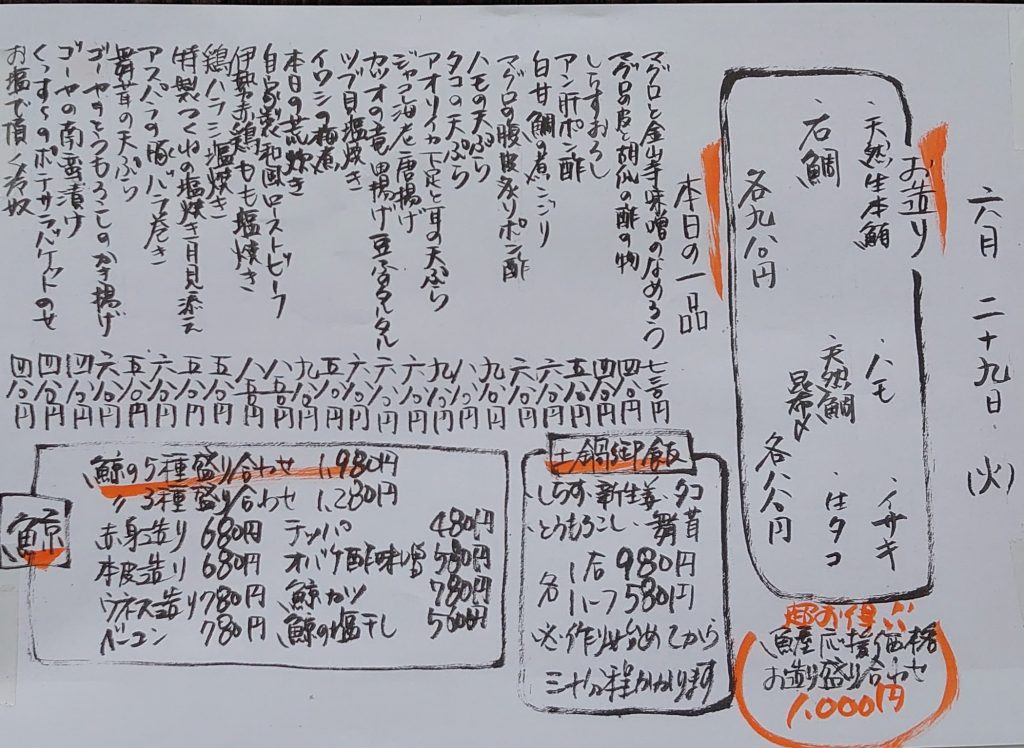 六月二十九日(火)
お造り
・天然生本鮪
・石鯛
各九八〇円
・ハモ
・イサキ
・天然鯛昆布〆
・生タコ
各八八〇円
超お得!!
魚屋応援価格
お造り盛り合わせ
1,000円
本日の一品
マグロと金山寺味噌のなめろう 七三〇円
マグロの皮と胡瓜の酢の物 四八〇円
しらすおろし 四八〇円
アン肝ポン酢 五八〇円
白甘鯛の煮こごり 六八〇円
マグロの腹皮炙りポン酢 六八〇円
ハモの天ぷら 九八〇円
タコの天ぷら 八八〇円
アオリイカ下足と耳の天ぷら 九八〇円
ジャコ海老唐揚げ 六八〇円
カツオの竜田揚げ豆ふタルタル 六八〇円
ツブ貝塩焼き 五八〇円
イワシの梅煮
本日の荒炊き
自家製和風ローストビーフ
伊勢赤鶏もも塩焼き
鶏ハラミ塩焼き
特製つくねの塩焼き月見添え
アスパラの豚バラ巻き
舞茸の天ぷら
ゴーヤとうもろこしのかき揚げ
ゴーヤの南蛮漬け
くんすらのポテサラバケットのせ
お塩で頂く冷奴 四八〇円
土鍋御飯
しらす・新生姜・タコ
とうもろこし・舞茸
各 1合 980円
ハーフ 580円
※作り始めてから
三十分程かかります
鯨
鯨の5種盛り合わせ 1,980円
〃 3種盛り合わせ 1,280円
赤身造り 680円 テッパ 480円
本皮造り 680円 オバケ酢味噌 580円
ウネス造り 780円 鯨カツ 780円
ベーコン 780円 鯨の塩干し 580円